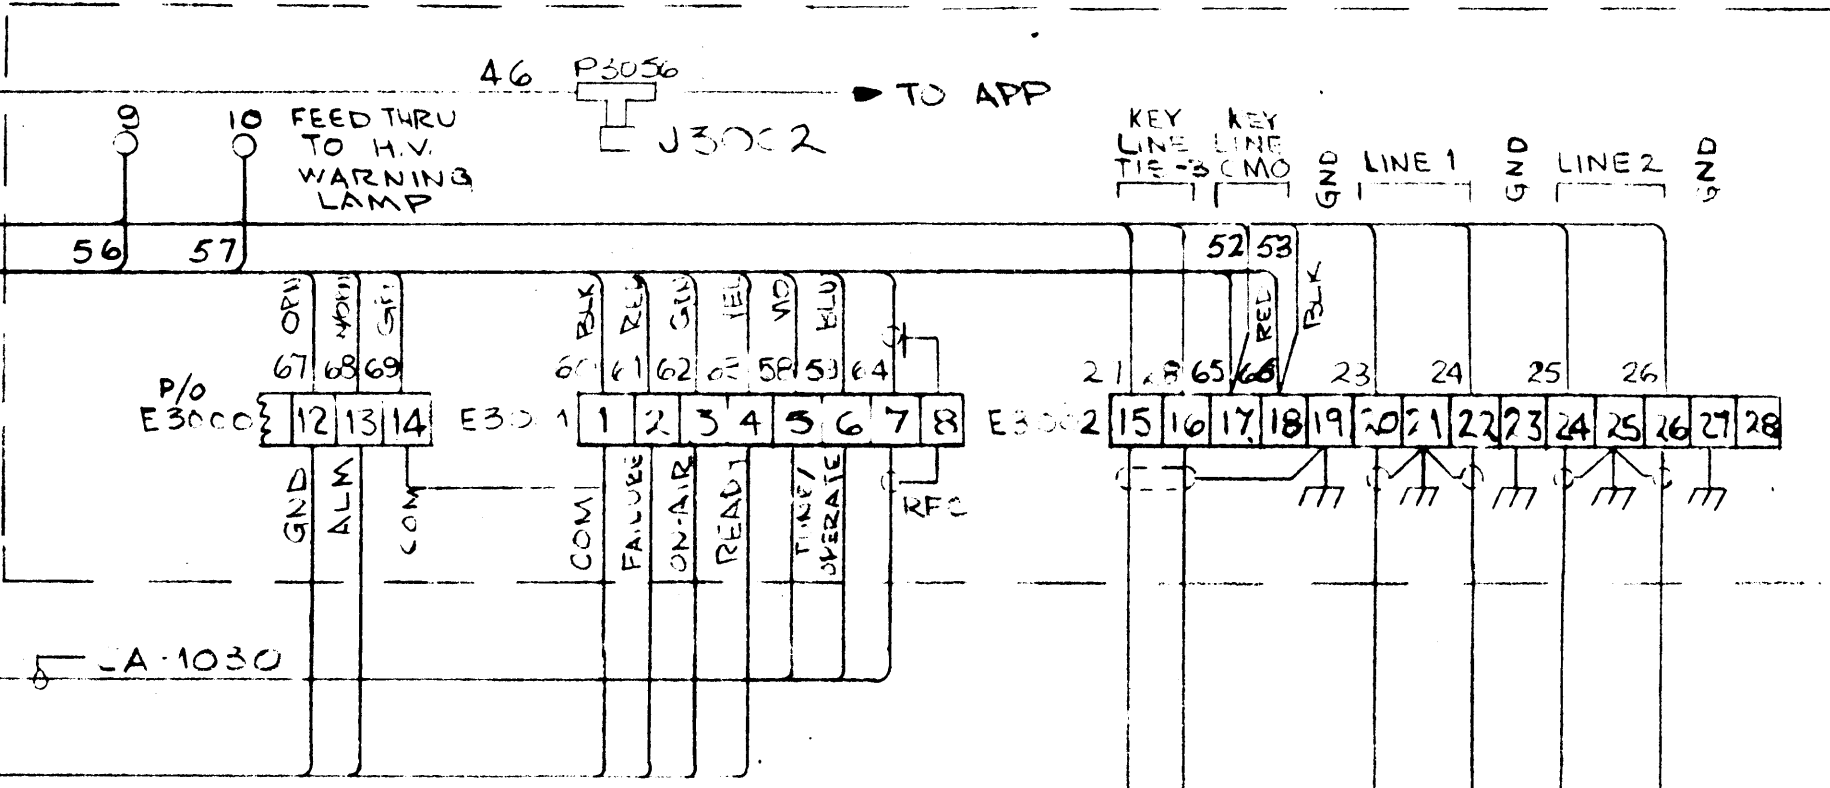 46 P3056
TO APP
J3002
9
10 FEED THRU
TO H.V.
WARNING
LAMP
KEY
LINE
TIE-3
KEY
LINE
CMO
GND
LINE 1
GND
LINE 2
GND
56 57
52 53
67 68 69
BLK
GRN
YEL
VIO
BLU
61 62 58 59 64
RED
BLK
21 28 65 66 23 24 25 26
P/O
E3000 12 13 14
E3001 1 2 3 4 5 6 7 8
E3002 15 16 17 18 19 20 21 22 23 24 25 26 27 28
GND
ALM
COM
COM
FAILURE
ON-AIR
READY
TUNE/
OPERATE
RFC
CA-1030